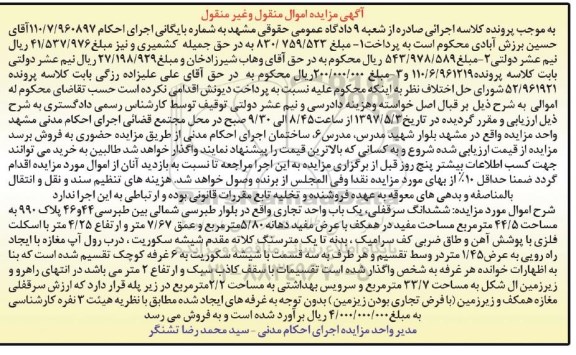 آگهی مزایده اموال منقول وغیر منقول
به موجب پرونده کلاسه اجرائی صادره از شعبه ۹ دادگاه عمومی حقوقی مشهد به شماره بایگانی اجرای احکام ۱۱۰/۷/۹۶۰۸۹۷ آقای
حسین برزش آبادی محکوم است به پرداخت ۱- مبلغ ۸۳۰/۷۵۹/۵۲۳ به در حق جمیله کشمیری و نیز مبلغ ۴۱/۵۳۷/۹۷۶ ریال
نیم عشر دولتی ۲-مبلغ ۵۴۳/۹۷۸/۵۸۹ ریال محکوم به در حق آقای وهاب شیرزادخان و مبلغ ۲۷/۱۹۸/۹۲۹ ریال نیم عشر دولتی
بابت کلاسه پرونده ۱۱۰/۶/۹۶۱۲۱۹ و ۳- مبلغ ۲۰۰/۲۰۰/۰۰۰ ریال محکوم به در حق آقای علی علیزاده رزگی بابت کلاسه پرونده
۵۲/۹۶۱۹۲۱ شورای حل اختلاف نظر به اینکه محکوم علیه نسبت به پرداخت دیونش اقدامی نکرده است حسب تقاضای محکوم له
اموالی به شرح ذیل بر قبال اصل خواسته وهزینه دادرسی و نیم عشر دولتی توقیف توسط کارشناس رسمی دادگستری به شرح
ذیل ارزیابی و مقرر گردیده در تاریخ ۱۳۹۷/۵/۲ از ساعت ۸/۴۵ الی ۹/۳۰ صبح در محل مجتمع قضائی اجرای احکام مدنی مشهد
واحد مزایده واقع در مشهد بلوار شهید مدرس، مدرس ۶، ساختمان اجرای احکام مدنی از طریق مزایده حضوری به فروش برسد
مزایده از قیمت ارزیابی شده شروع وبه کسانی که بالاترین قیمت را پیشنهاد نمایند واگذار خواهد شد طالبین به خرید می توانند
جهت کسب اطلاعات بیشتر پنج روز قبل از برگزاری مزایده به این اجرا مراجعه تا نسبت به بازدید آنان از اموال مورد مزایده اقدام
گردد ضمنا حداقل ۱۰٪ از بهای مورد مزایده نقدا وفی المجلس از برنده وصول خواهد شد. هزینه های تنظیم سند و نقل و انتقال
بالمناصفه و بدهی های معوقه به عهده فروشنده و تخلیه تابع مقررات قانونی بوده و ارتباطی به این اجرا ندارد
شرح اموال مورد مزایده: ششدانگ سرقفلی، یک باب واحد تجاری واقع در بلوار طبرسی شمالی بین طبرسی ۴۴ و ۴۶ پلاک ۹۹۰ به
مساحت ۴۴/۵ مترمربع مساحت مفید در همکف با عرض مفید دهانه ۵/۸۰ مترمربع و عمق ۷/۶۷ متر و ارتفاع ۴/۲۵ متر با اسکلت
فلزی با پوشش آهن و طاق ضربی کف سرامیک بدنه تا زیر سقف سرامیک مترستگ کلانه مقدم شیشه سکوریت، درب رول آپ مغازه با ایجاد
راه رویی به عرض ۱/۴۵ متر در وسط تقسیم و هر طرف به سه قسمت با شیشه سکوریت به ۶ غرفه کوچک تقسیم شده است که بنا
به اظهارات خوانده هر غرفه به شخص واگذار شده است تقسیمات با سقف کاذب تایل و ارتفاع ۲ متر می باشد در انتهای راهرو و
زیرزمین ال شکل به مساحت ۳۳/۷ مترمربع و سرویس بهداشتی به مساحت ۲/۲ مترمربع در زیر پله قرار دارد که ارزش سرقفلی
مغازه همکف و زیرزمین (با فرض تجاری بودن زیزمین) بدون توجه به غرفه های ایجاد شده مطابق با نظریه هیئت ۳ نفره کارشناسی
به مبلغ ۴/۰۰۰/۰۰۰/۰۰۰ ریال برآورد شده است و به فروش می رسد
مدیر واحد مزایده اجرای احکام مدنی - سید محمد رضا تشنگر